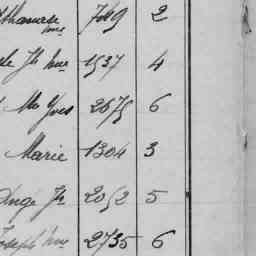 Athanase 749 2
Jh 1537 4
Yves 2675 6
Marie 1304 3
Ange Jh 2052 5
Joseph 2735 6